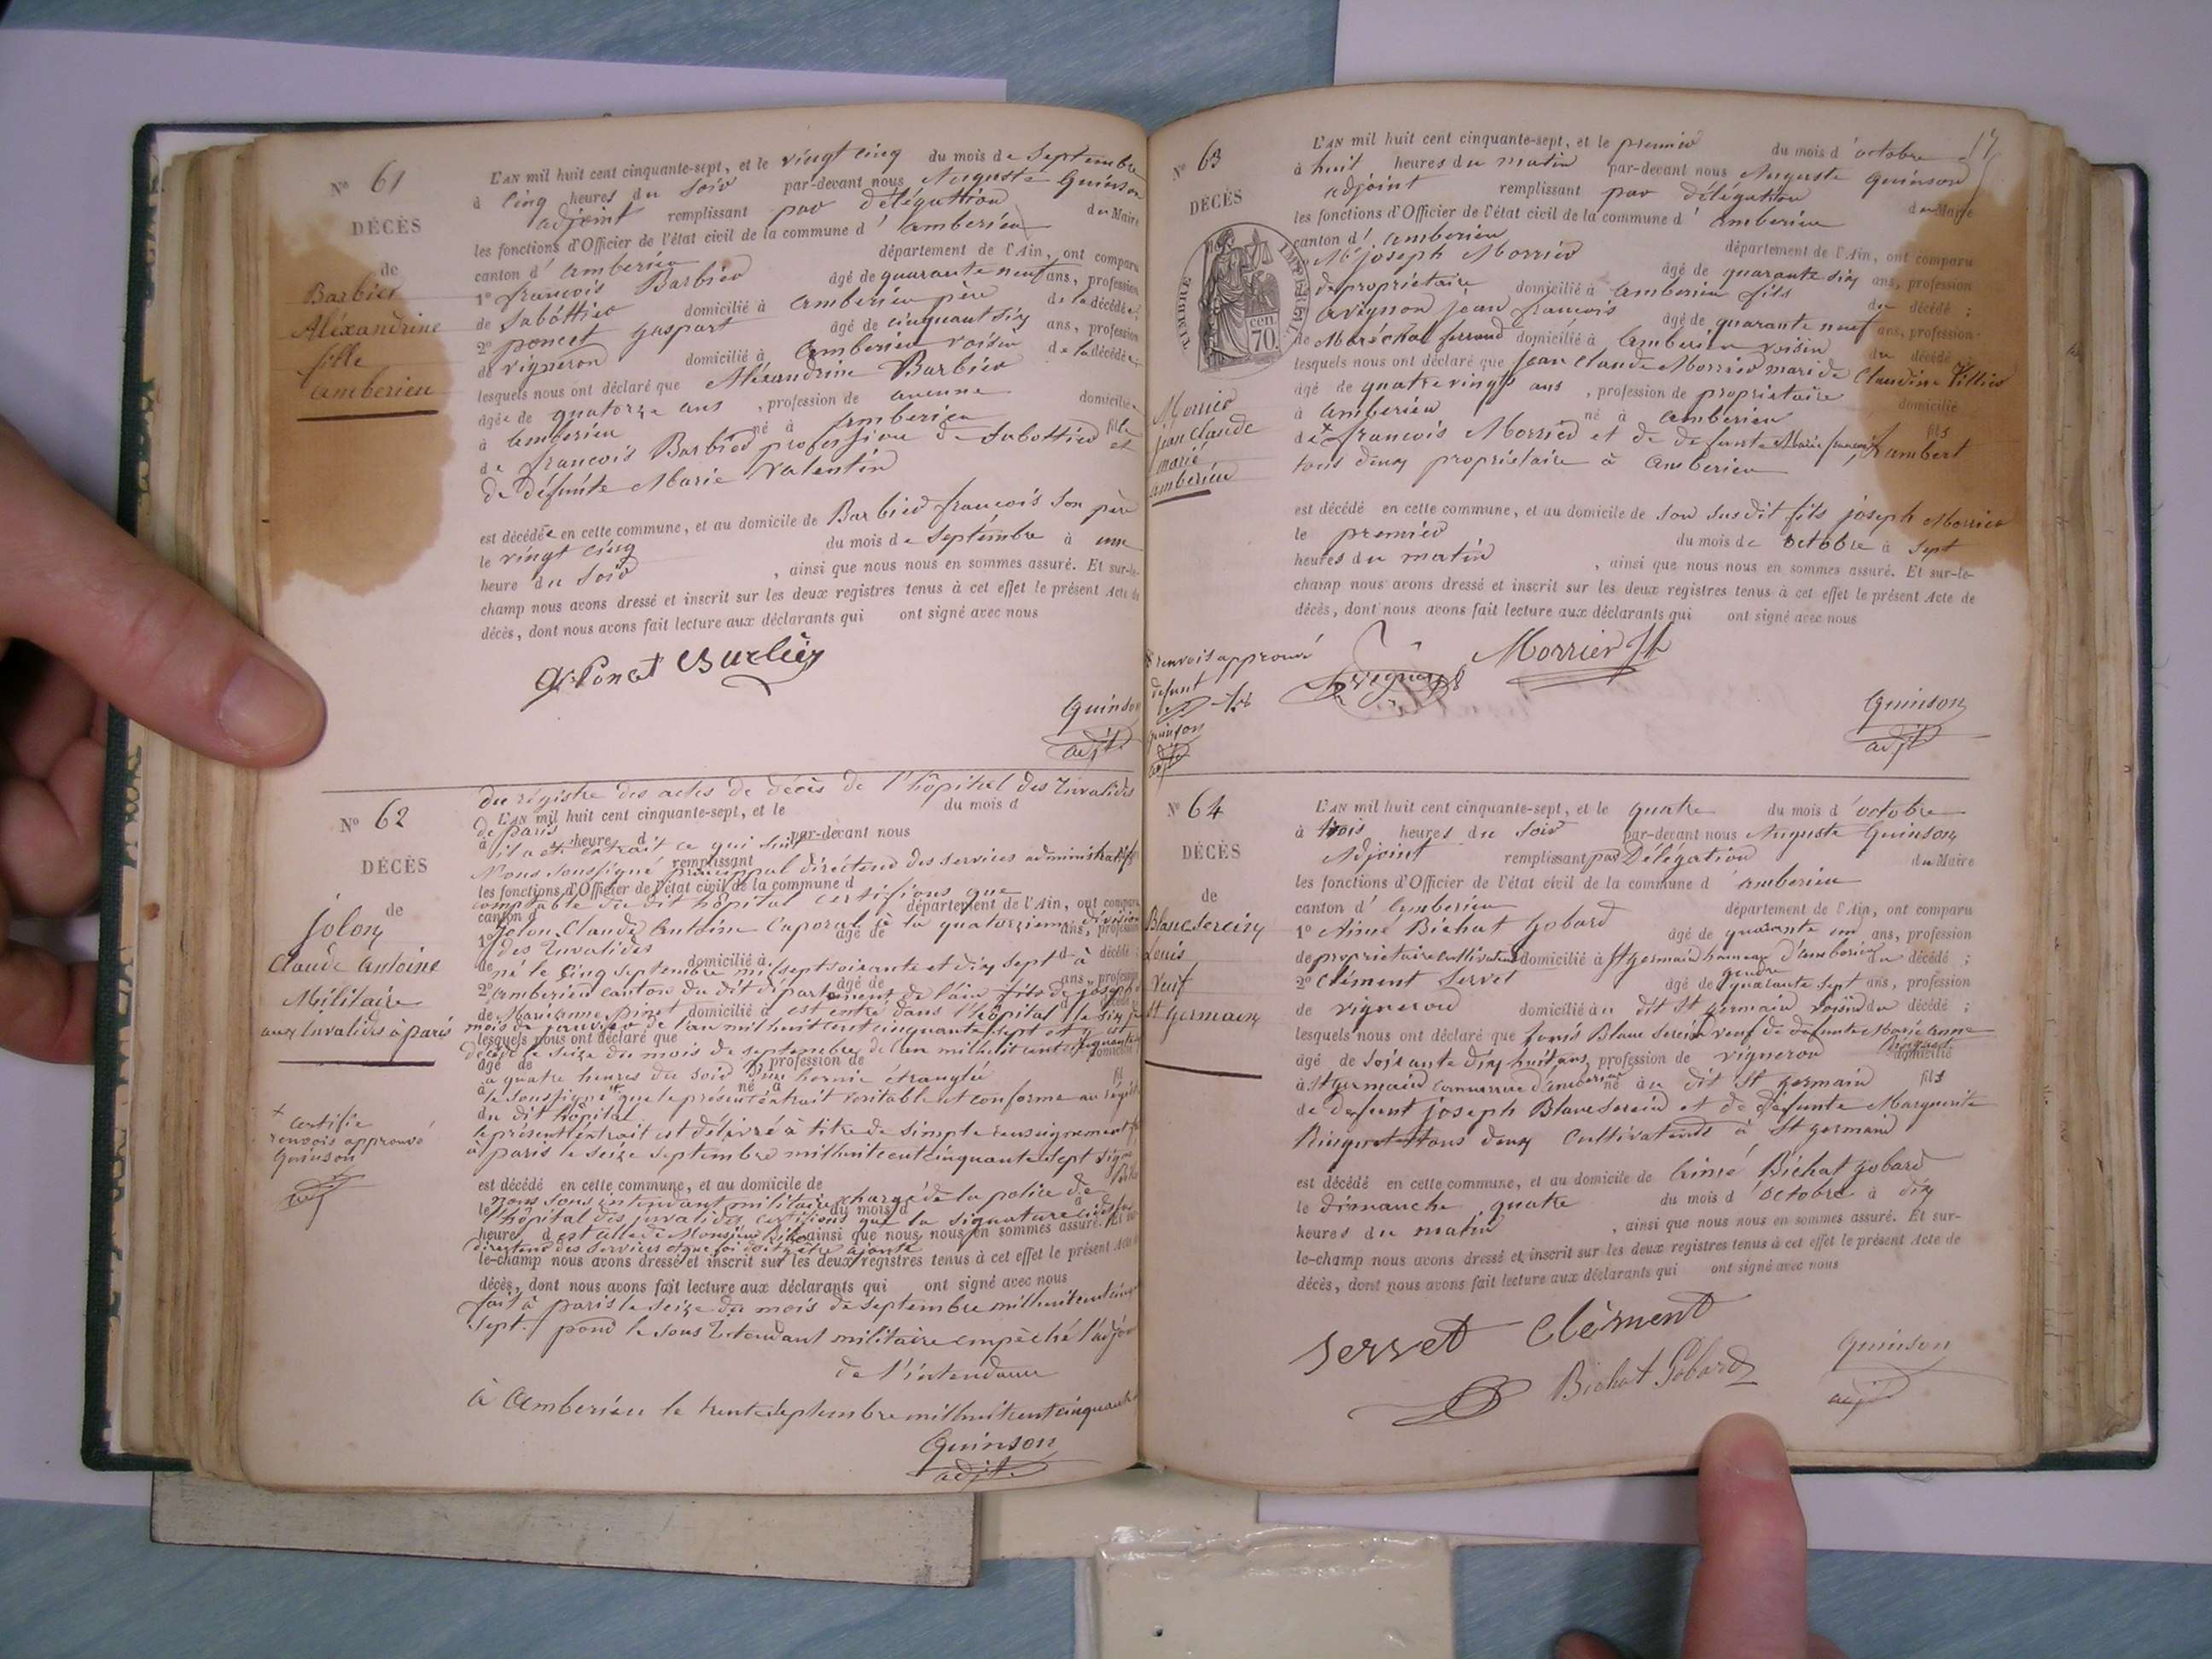 N° 61
DÉCÈS
de
Barbier
Aléxandrine
fille
amberieu
L'AN mil huit cent cinquante-sept, et le vingt cinq du mois de Septembre
à Cinq heures du Soir par-devant nous Auguste Quinson
adjoint remplissant par délégation du Maire
les fonctions d'Officier de l'état civil de la commune d' amberieu
canton d' amberieu département de l'Ain, ont comparu
1° françois Barbier âgé de quarante neuf ans, profession
de Sabottier domicilié à amberieu père de la décédée;
2° poncet gaspart âgé de cinquant six ans, profession
de vigneron domicilié à amberieu voisin de la décédée;
lesquels nous ont déclaré que Aléxandrine Barbier
âgée de quatorze ans, profession de aucune domiciliée
à amberieu né à amberieu fille
de françois Barbier profession de Sabottier et
de défunte Marie Valentin
est décédée en cette commune, et au domicile de Barbier françois Son père
le vingt cinq du mois de Septembre à une
heure du Soir, ainsi que nous nous en sommes assuré. Et sur-le-
champ nous avons dressé et inscrit sur les deux registres tenus à cet effet le présent Acte de
décès, dont nous avons fait lecture aux déclarants qui ont signé avec nous
Quinson
adjt
N° 62
DÉCÈS
de
Jolon
Claude Antoine
Militaire
aux Invalides à paris
+
certifie
renvois approuvé
Quinson
adjt
du régistre des actes de décès de l'hôpital des Invalides
L'AN mil huit cent cinquante-sept, et le du mois d
de paris
à heure d par-devant nous
il a été extrait ce qui suit
remplissant
Nous Soussigné principal directeur des services administratifs
les fonctions d'Officier de l'état civil de la commune d
comptable du dit hôpital certifions que
canton d département de l'Ain, ont comparu
Jolon Claude Antoine Caporal à la quatorzieme division
1° âgé de ans, profession
des Invalides
de domicilié à d décédé;
né le cinq septembre mil sept soixante et dix sept à
2° âgé de ans, profession
amberieu canton du dit département de l'ain fils de joseph
de domicilié à
de Marianne pinet est entré dans l'hôpital le six
mois de janvier de l'an mil huit cent cinquante sept et y est
lesquels nous ont déclaré que
décédé le seize du mois de septembre de l'an mil huit cent cinquante
âgé de profession de domicilié
à quatre heures du soir d'une hernie étranglée
à né à fil
le soussigné que le présent extrait véritable et conforme au régistre
du dit hôpital
le présent extrait est délivré à titre de simple renseignement
à paris le seize Septembre mil huit cent cinquante sept signé
est décédé en cette commune, et au domicile de
nous sous intendant militaire chargé de la police de
le du mois d à
l'hôpital des invalides certifions que la signature ci dessus
heure d ainsi que nous nous en sommes assuré. Et sur-
est celle de Monsieur
directeur des services et que foi doit y être ajoutée
le-champ nous avons dressé et inscrit sur les deux registres tenus à cet effet le présent Acte de
décès, dont nous avons fait lecture aux déclarants qui ont signé avec nous
fait à paris le seize du mois de septembre mil huit cent cinqu
sept. pour le sous Intendant militaire empêché l'adjoint
de l'intendance
à Amberieu le trente septembre mil huit cent cinquante
Quinson
adjt
17
N° 63
DÉCÈS
TIMBRE IMPERIAL
cen
70.
Morrier
jean Claude
marié
amberieu
renvois approuvé
défunt
Quinson
adjt
L'AN mil huit cent cinquante-sept, et le premier du mois d'octobre
à huit heures du matin par-devant nous Auguste Quinson
adjoint remplissant par délégation du Maire
les fonctions d'Officier de l'état civil de la commune d' amberieu
canton d' amberieu département de l'Ain, ont comparu
joseph Morrier âgé de quarante six ans, profession
de propriétaire domicilié à amberieu fils du décédé;
avignon jean françois âgé de quarante neuf ans, profession
de Maréchal ferrand domicilié à amberieu voisin du décédé
lesquels nous ont déclaré que jean Claude Morrier mari de Claudine Villier
âgé de quatre vingts ans, profession de propriétaire domicilié
à amberieu né à amberieu fils
de + françois Morrier et de defunte Marie françoise Lambert
tous deux propriétaire à amberieu
est décédé en cette commune, et au domicile de son susdit fils joseph Morrier
le premier du mois de octobre à sept
heures du matin, ainsi que nous nous en sommes assuré. Et sur-le-
champ nous avons dressé et inscrit sur les deux registres tenus à cet effet le présent Acte de
décès, dont nous avons fait lecture aux déclarants qui ont signé avec nous
Avignon Morrier Jh
Quinson
adjt
N° 64
DÉCÈS
de
Blanc Serein
Louis
Veuf
St Germain
L'AN mil huit cent cinquante-sept, et le quatre du mois d'octobre
à trois heures du soir par-devant nous Auguste Quinson
Adjoint remplissant par Délégation du Maire
les fonctions d'Officier de l'état civil de la commune d' amberieu
canton d' amberieu département de l'Ain, ont comparu
1° Aimé Bichat Gobard âgé de quarante un ans, profession
de propriétaire cultivateur domicilié à St germain hameau d'amberieu du décédé;
gendre
2° Clément Servet âgé de quarante sept ans, profession
de vigneron domicilié au dit St germain voisin du décédé;
lesquels nous ont déclaré que Louis Blanc Serein veuf de défunte Marie Anne
âgé de soixante dix huit ans, profession de vigneron domicilié
à St germain commune d'amberieu né au dit St germain fils
de defunt joseph Blanc Serein et de défunte Marguerite
tous deux cultivateurs à St germain
est décédé en cette commune, et au domicile de Aimé Bichat gobard
le dimanche quatre du mois d'octobre à dix
heures du matin, ainsi que nous nous en sommes assuré. Et sur-
le-champ nous avons dressé et inscrit sur les deux registres tenus à cet effet le présent Acte de
décès, dont nous avons fait lecture aux déclarants qui ont signé avec nous
Servet Clément
Bichat Gobard
Quinson
adjt